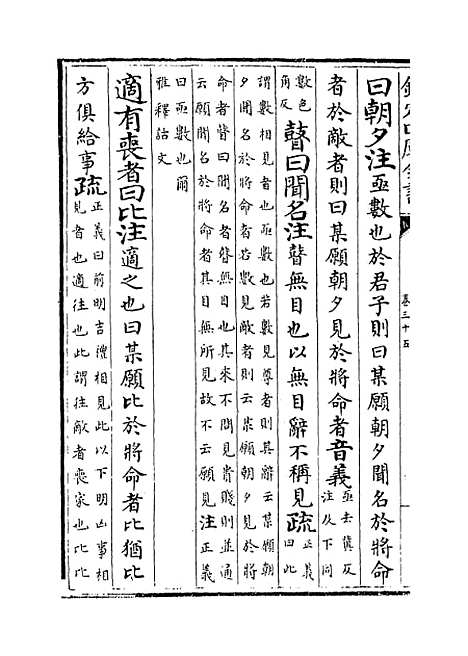 欽定四庫全書
卷三十五
曰朝夕注亟數也於君子則曰某願朝夕聞名於將命
者於敵者則曰某願朝夕見於將命者音義亟去冀反
注及下同
數色
角反瞽曰聞名注瞽無目也以無目辭不稱見疏正義
曰此
謂數相見者也亟數也若數見尊者則其辭云某願朝
夕聞名於將命者若數見敵者則云某願朝夕見於將
命者瞽曰聞名者瞽無目也其來不問見貴賤則並通
云願聞名於將命者其目無所見故不云願見注正義
曰亟數也爾
雅釋詁文
適有喪者曰比注適之也曰某願比於將命者比猶比
方俱給事疏正義曰前明吉禮相見此以下明凶事相
見者也適往也此謂往敵者喪家也比比